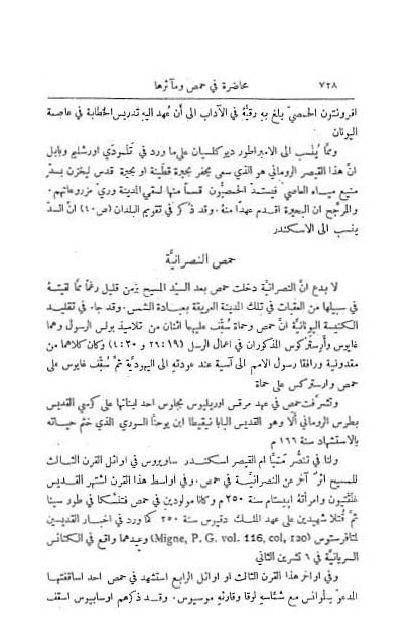 ٧٢٨ محاضرة في حمص ومآثرها
افرونتون الحمصيّ بلغ به رقيّهُ في الآداب الى أن عُهد اليهِ تدريس الخطابة في عاصمة
اليونان
وممّا يُنسب الى الامبراطور ديوكلسيان على ما ورد في تلمودَي اورشليم وبابل
انّ هذا القيصر الروماني هو الذي سعى بحفر بحيرة قطينة او بحيرة قدس ليخزن بسدّ
منيع مياه العاصي فيستمدّ الحمصيّون قسماً منها لسقي المدينة وريّ مزروعاتهم.
والمرجّح ان البحيرة اقدم عهداً منهُ. وقد ذُكر في تقويم البلدان (ص٤٠) انّ السدّ
ينسب الى الاسكندر
حمص النصرانيَّة
لا بدع انّ النصرانيَّة دخلت حمص بعد السيّد المسيح بزمن قليل رغماً ممّا لقيتهُ
في سبيلها من العقبات في تلك المدينة العريقة بعبادة الشمس. وقد جاء في تقليد
الكنيسة اليونانيَّة انّ حمص وحماة سُقّف عليهما اثنان من تلاميذ بولس الرسول وهما
غايوس وأرسترکوس المذكوران في اعمال الرسل (٢٩:١٩ و ٤:٢٠) وكان كلاهما من
مقدونية ورافقا رسول الامم الى آسية عند عودته الى اليهوديَّة ثمّ سُقّف غايوس على
حمص وارسترکس على حماة
وتشرّفت حمص في عهد مرقس اوريليوس بجلوس احد ابنائها على كرسي القديس
بطرس الروماني ألا وهو القديس البابا نيقيطا ابن يوحنّا السوري الذي ختم حياته
بالاستشهاد سنة ١٦٦ م
ولنا في تنصُّر مَميّا ام القيصر اسكندر ساويروس في اوائل القرن الثالث
للمسيح اثرٌ آخر عن النصرانيّة في حمص. وفي اواسط هذا القرن اشتهر القديس
غلكتيون وامرأتهُ ابيستام سنة ٢٥٠ م وكانا مولودَين في حمص فتنسّكا في طور سينا
ثمّ قُتلا شهيدين على عهد الملك دقيوس سنة ٢٥٠ كما ورد في اخبار القديسين
لمتافرستوس (Migne, P. G. vol. 116, col, 120) وعيدهما واقع في الكنائس
السريانيَّة في ٦ تشرين الثاني
وفي اواخر هذا القرن الثالث او اوائل الرابع استشهد في حمص احد اساقفتها
المدعوّ سلوانس مع شمّاسهِ لوقا وقارئهِ موسيوس. وقد ذكرهم اوسابيوس اسقف